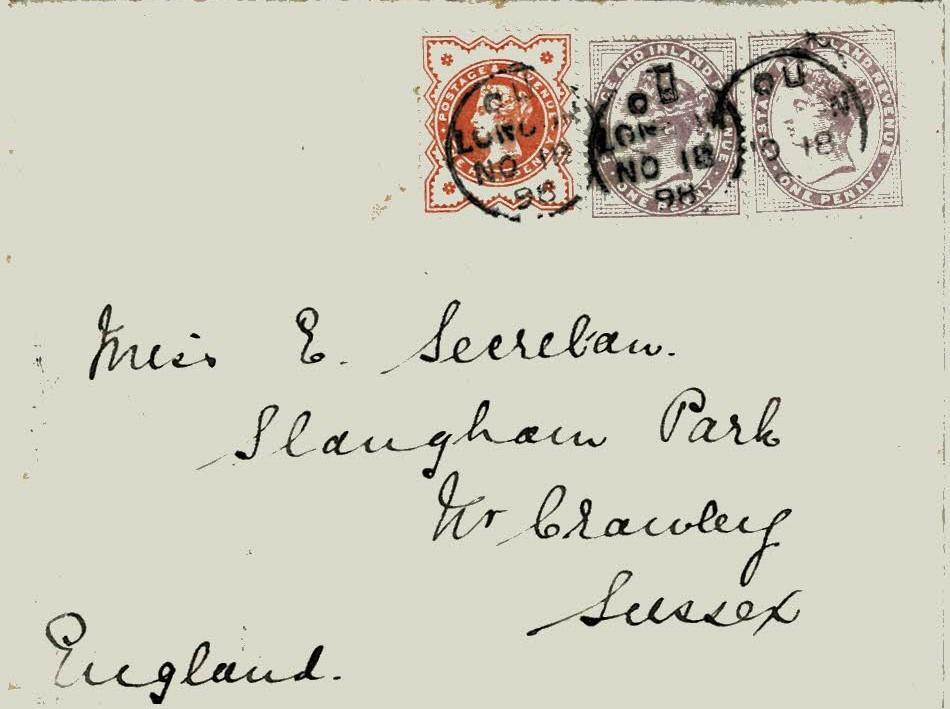 POSTAGE & REVENUE
LONDON
NO 18
98
POSTAGE AND INLAND REVENUE
ONE PENNY
LONDON
NO 18
98
INLAND REVENUE
ONE PENNY
18
Miss E. Secretan.
Slaugham Park
Nr Crawley
Sussex
England.